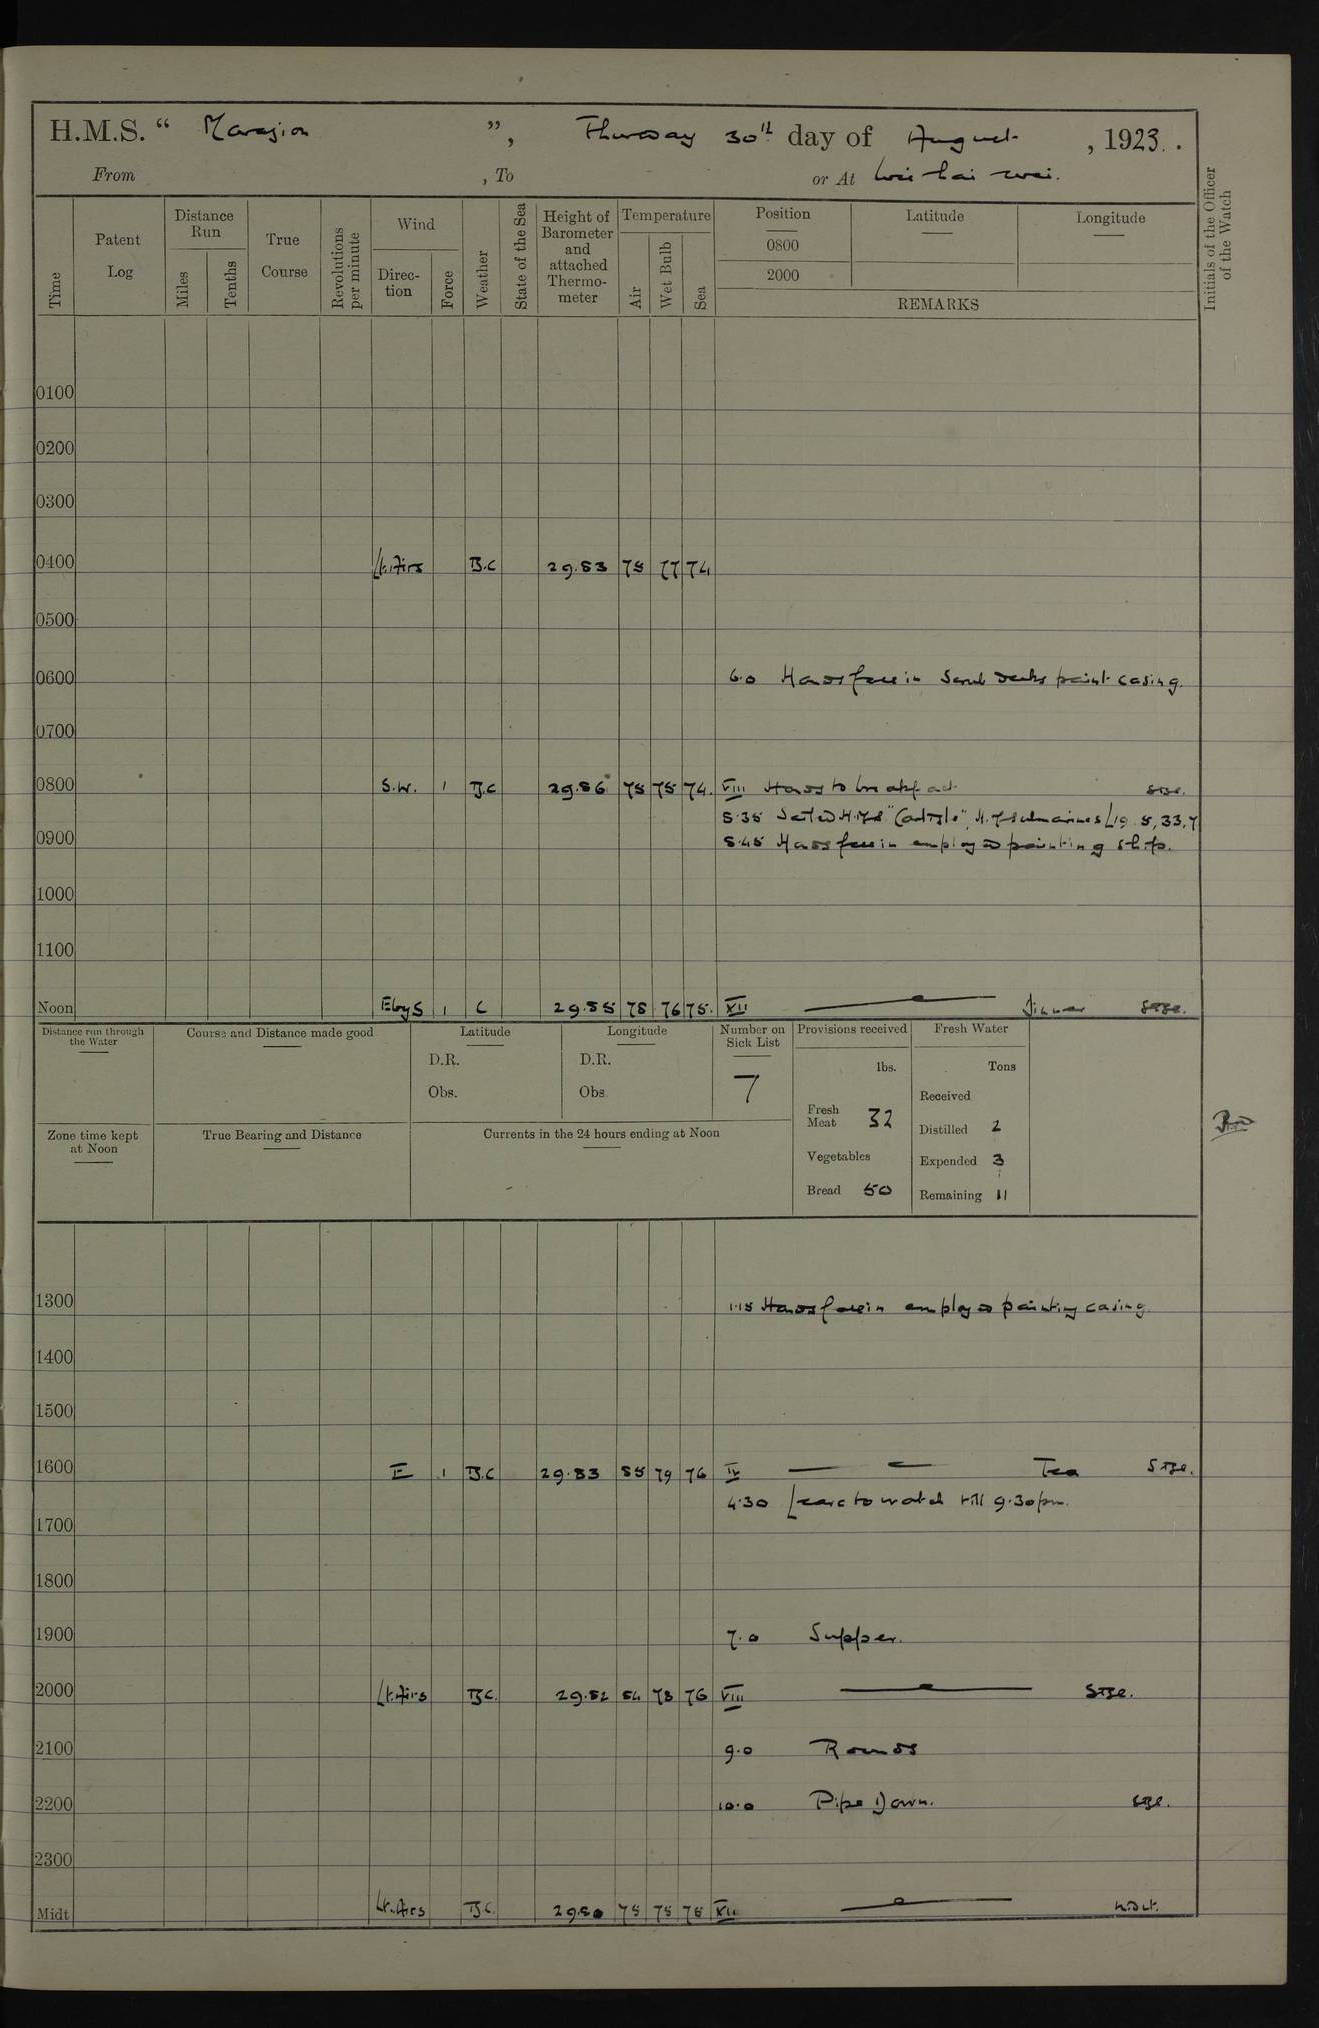 H.M.S. “ Marazion ”, Thursday 30th day of August , 1923 .
From , To or At Wei hai wei.
Initials of the Officer of the Watch
Time
Patent Log
Distance Run
Miles
Tenths
True Course
Revolutions per minute
Wind
Direc-tion
Force
Weather
State of the Sea
Height of Barometer and attached Thermo-meter
Temperature
Air
Wet Bulb
Sea
Position
0800
2000
Latitude
Longitude
REMARKS
0100
0200
0300
0400 Lt. Airs B.C 29.83 78 77 74
0500
0600 6.0 Hands fall in Scrub decks paint casing.
0700
0800 S.W. 1 B.C 29.86 78 75 74. VIII Hands to breakfast
8.35 Sailed H.M.S "Carlisle", H.M. Submarines L19. 5, 33, 7
0900 8.45 Hands fall in employed painting ship.
1000
1100
Noon E by S 1 C 29.85 78 76 75. XII Dinner
Distance run through the Water
Course and Distance made good
Latitude
D.R.
Obs.
Longitude
D.R.
Obs.
Number on Sick List
7
Provisions received
lbs.
Fresh Meat 32
Vegetables
Bread 50
Fresh Water
Tons
Received
Distilled 2
Expended 3
Remaining 11
Zone time kept at Noon
True Bearing and Distance
Currents in the 24 hours ending at Noon
1300 1.15 Hands fall in employed painting casing.
1400
1500
1600 E 1 B.C 29.83 85 79 76 IV Tea
4.30 Leave to watch till 9.30 pm.
1700
1800
1900 7.0 Supper.
2000 Lt. Airs B.C. 29.82 84 78 76 VIII
2100 9.0 Rounds
2200 10.0 Pipe Down.
2300
Midt Lt. Airs B.C. 29.80 78 75 75 XII